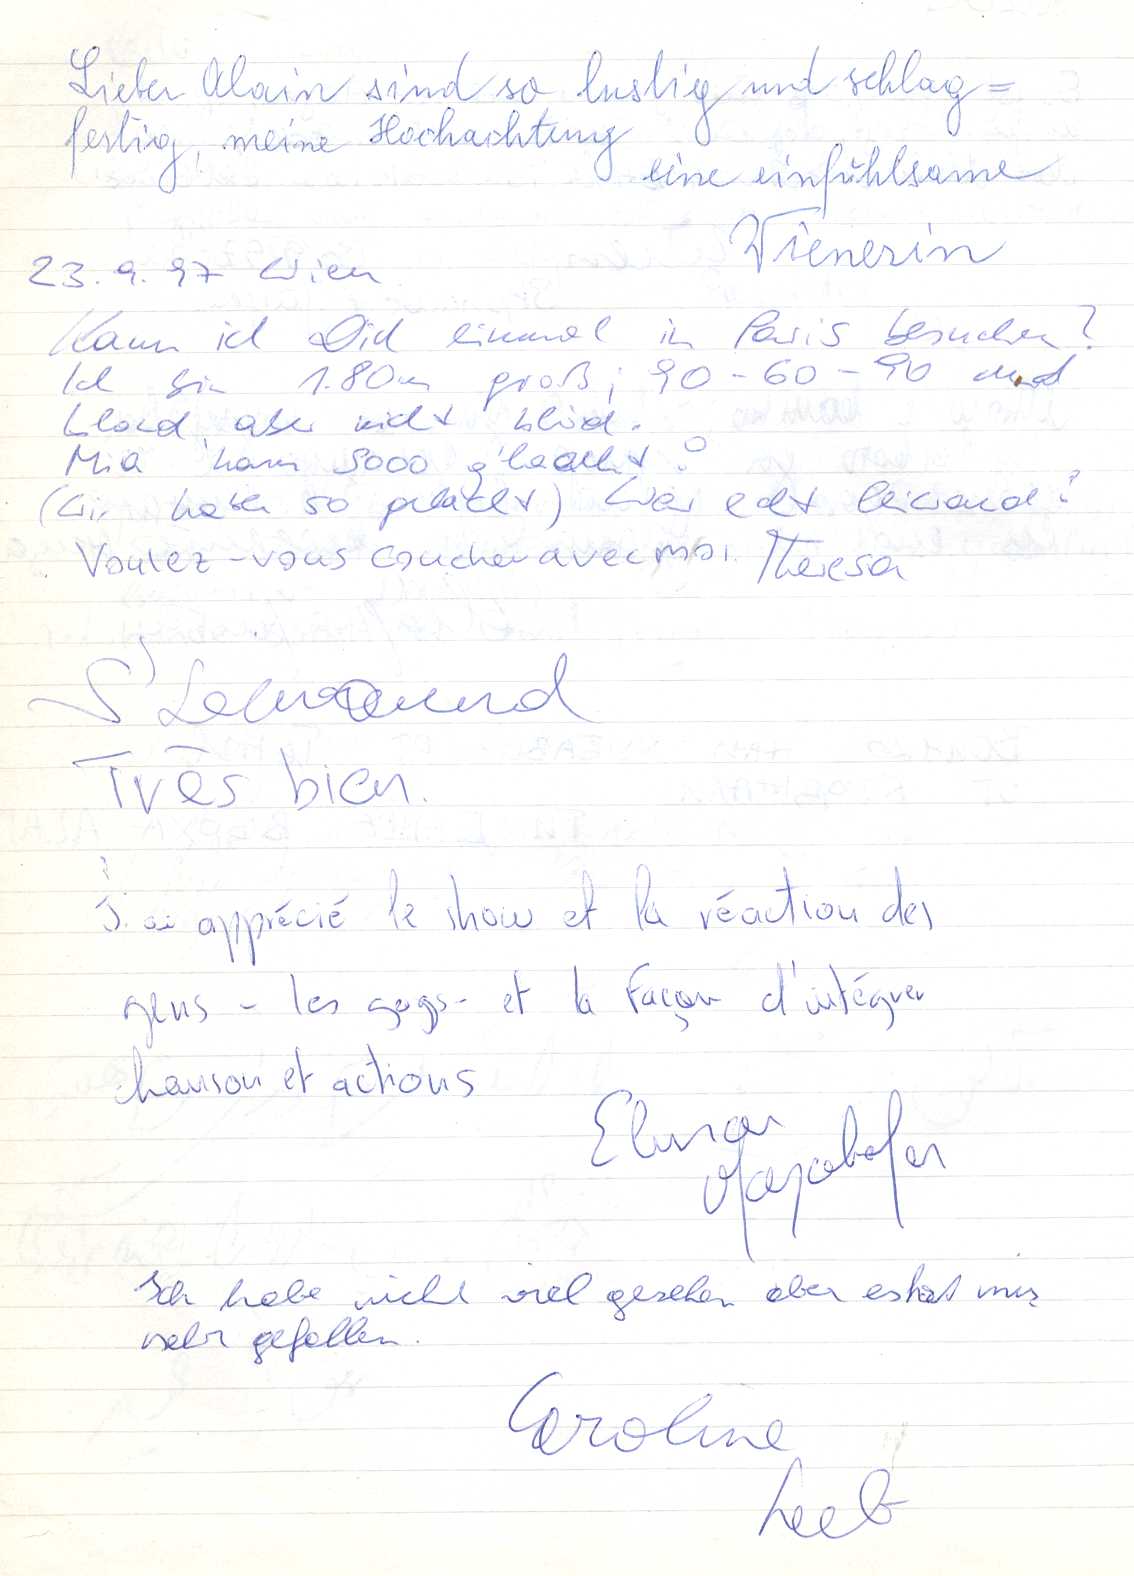 Lieber Alain sind so lustig und schlag=
fertig, meine Hochachtung
eine einfühlsame
Wienerin
23.9.97 Wien
Kann ich Dich einmal in Paris besuchen?
Ich bin 1.80m groß; 90-60-90 und
blond, aber nicht blöd.
Mia ham sooo g'lacht!
(Wir haben so gelacht) War echt leiwand!
Voulez-vous coucher avec moi. Theresa
S'
Très bien.
J'ai apprécié le show et la réaction des
gens - les gags - et la façon d'intégrer
chanson et actions
Ich habe nicht viel gesehen aber es hat mir
sehr gefallen.
Caroline
Leeb